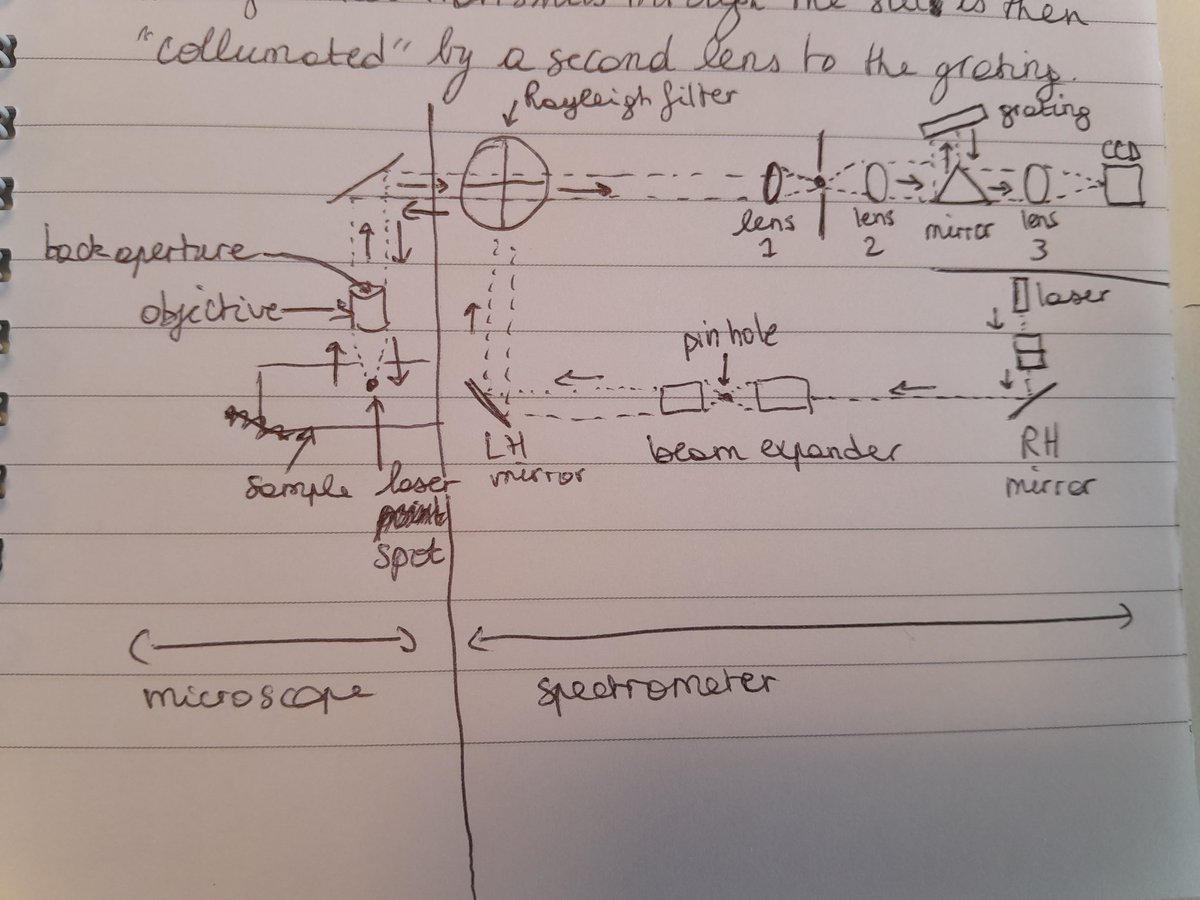 through the slit is then
"collumated" by a second lens to the grating.
Rayleigh filter
grating
CCD
lens 1
lens 2
mirror
lens 3
back aperture
objective
laser
pin hole
LH mirror
beam expander
RH mirror
sample
laser spot
microscope
spectrometer